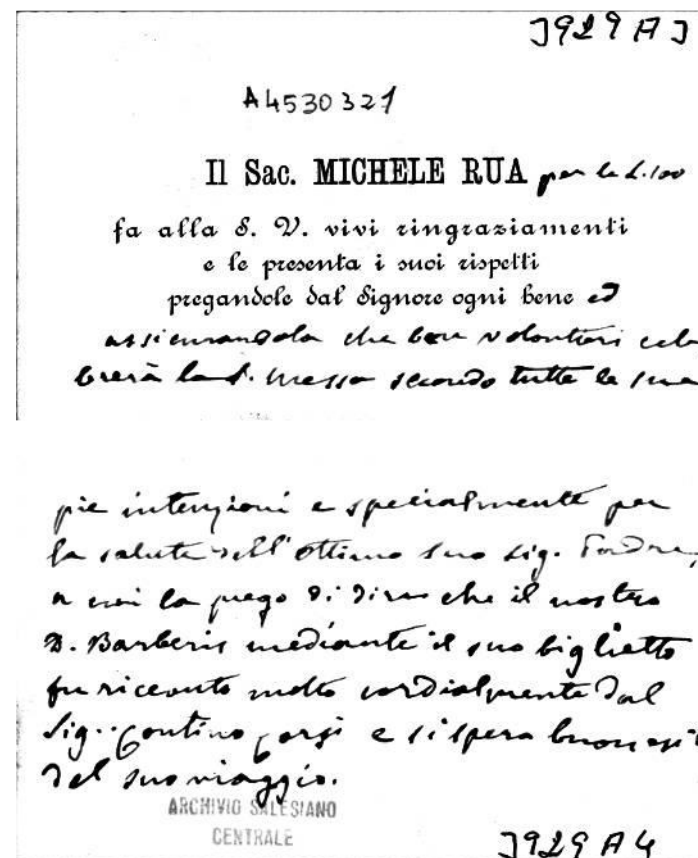 J929 A J
A4530321
Il Sac. MICHELE RUA per le L. 100
fa alla S. V. vivi ringraziamenti
e le presenta i suoi rispetti
pregandole dal Signore ogni bene ed
assicurandola che ben volontieri cele
brerà la S. messa secondo tutte le sue
pie intenzioni e specialmente per
la salute dell'ottimo suo Sig. Padre,
a cui la prego di dire che il nostro
D. Barberis mediante il suo biglietto
fu ricevuto molto cordialmente dal
Sig. Contino Corsi e si spera buon
del suo viaggio.
ARCHIVIO SALESIANO
CENTRALE
J929 A4